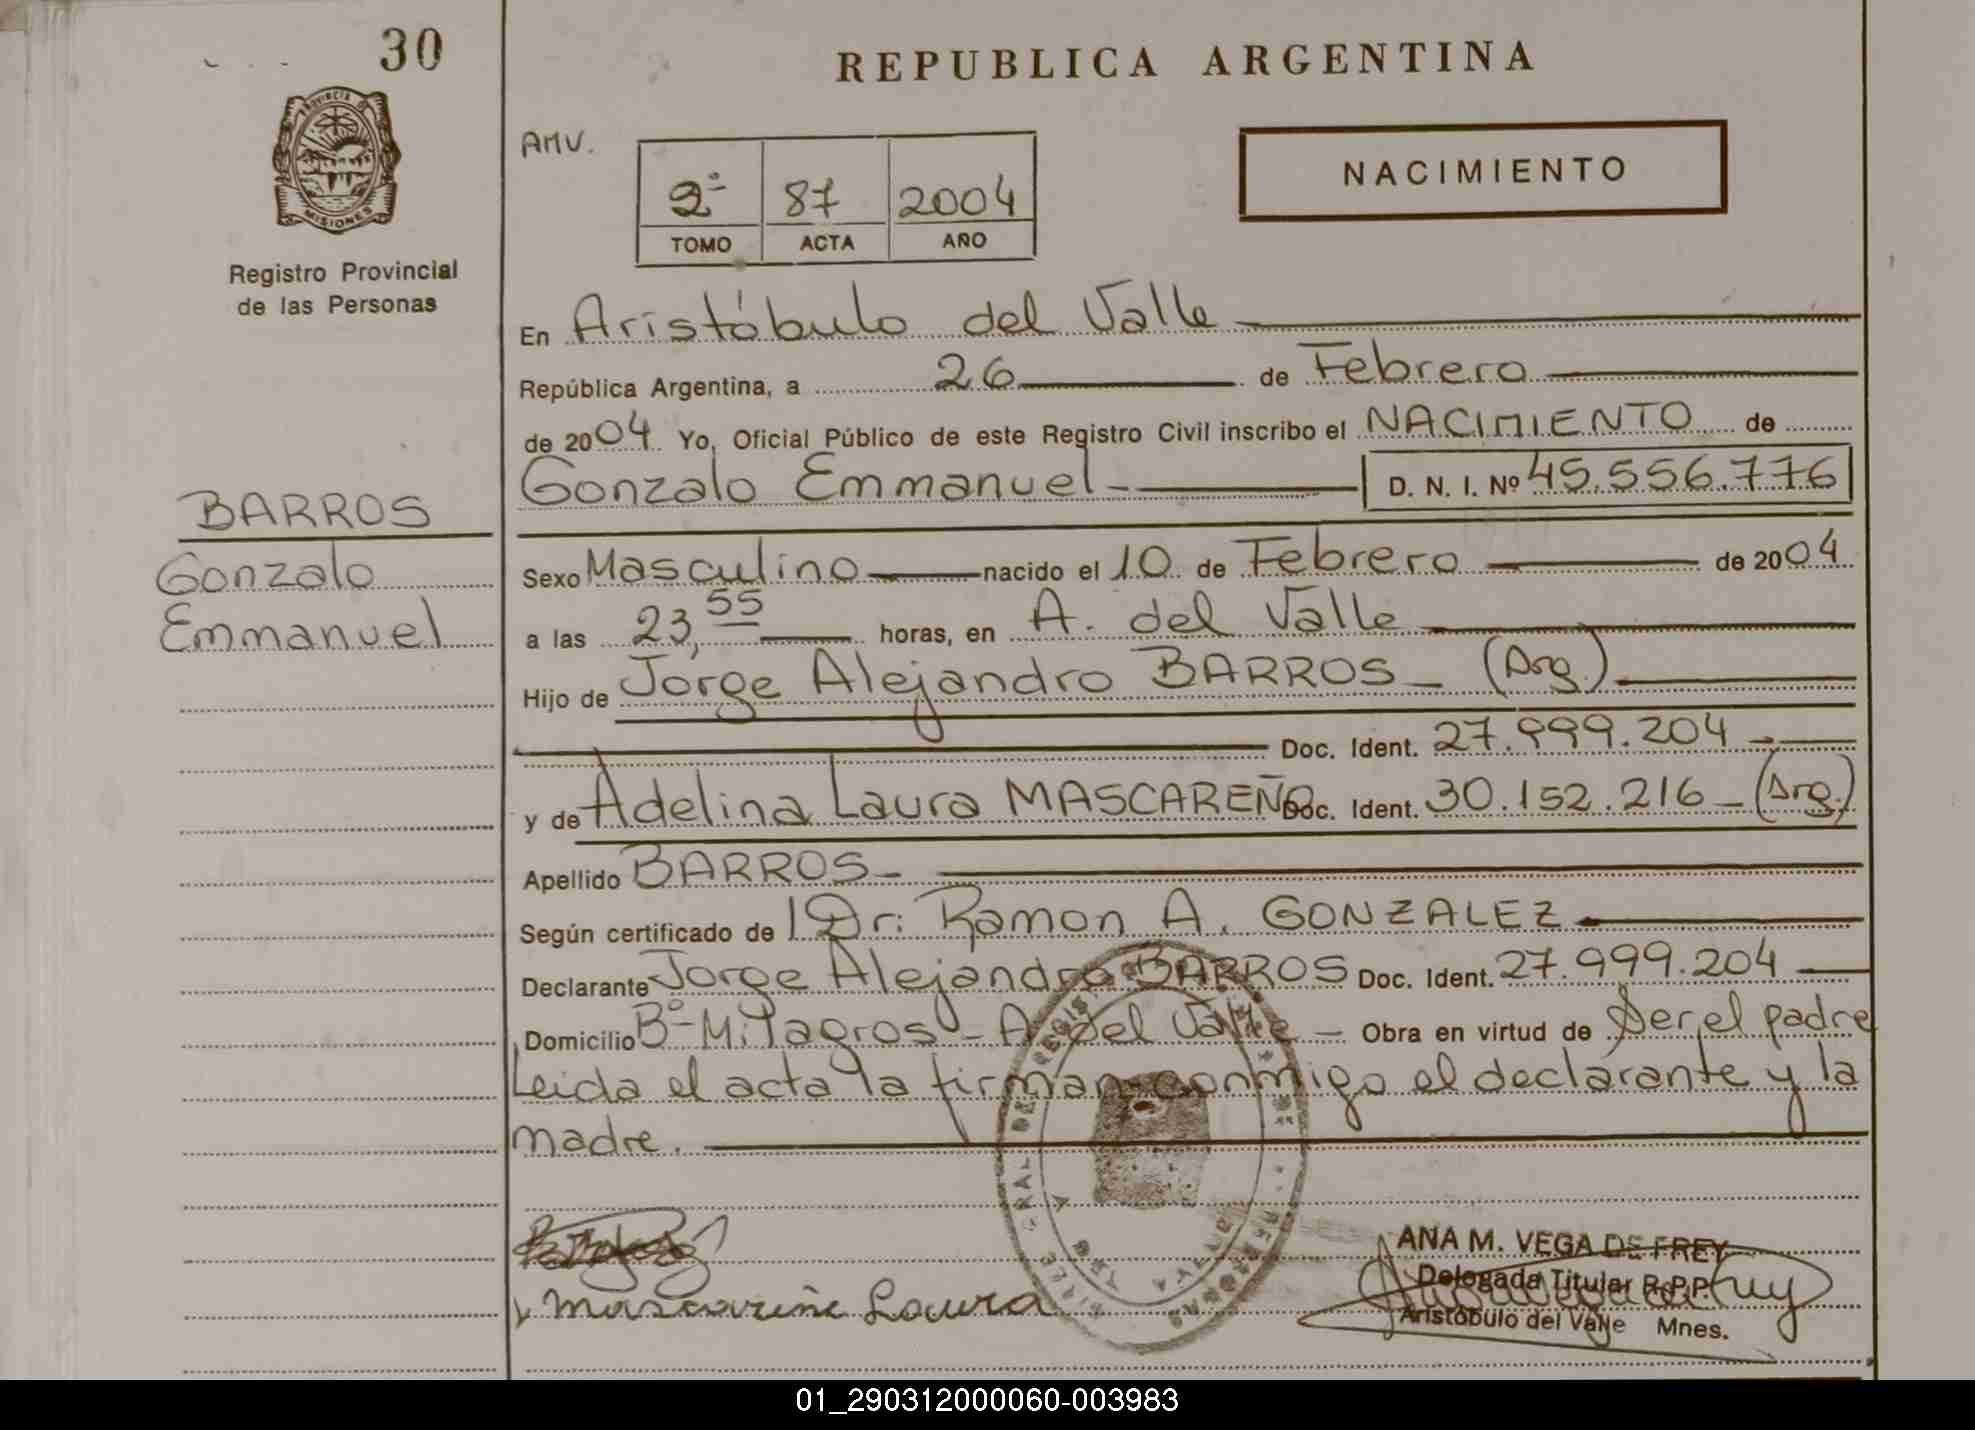 30
PROVINCIA DE
MISIONES
Registro Provincial
de las Personas
REPUBLICA ARGENTINA
AMV.
2º 87 2004
TOMO ACTA AÑO
NACIMIENTO
En Aristóbulo del Valle
República Argentina, a 26 de Febrero
de 2004 Yo, Oficial Público de este Registro Civil inscribo el NACIMIENTO de
Gonzalo Emmanuel D. N. I. Nº 45.556.776
BARROS
Gonzalo
Emmanuel
Sexo Masculino nacido el 10 de Febrero de 2004
a las 23,55 horas, en A. del Valle
Hijo de Jorge Alejandro BARROS (Arg.)
Doc. Ident. 27.999.204
y de Adelina Laura MASCAREÑO Doc. Ident. 30.152.216 (Arg.)
Apellido BARROS
Según certificado de Dr. Ramon A. GONZALEZ
Declarante Jorge Alejandro BARROS Doc. Ident. 27.999.204
Domicilio Bº Milagros - A. del Valle - Obra en virtud de Ser el padre
Leida el acta la firman conmigo el declarante y la
madre.
Laura
ANA M. VEGA DE FREY
Delegada Titular R.P.P.
Aristóbulo del Valle Mnes.
01_290312000060-003983